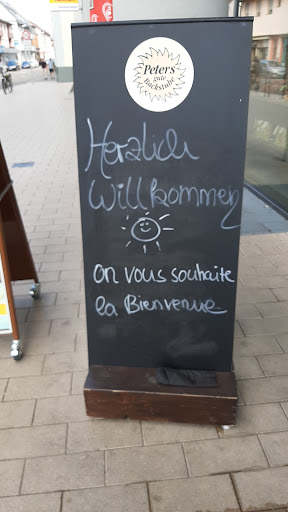 Peters
gute
Backstube
Herzlich
Willkommen
on vous souhaite
la Bienvenue